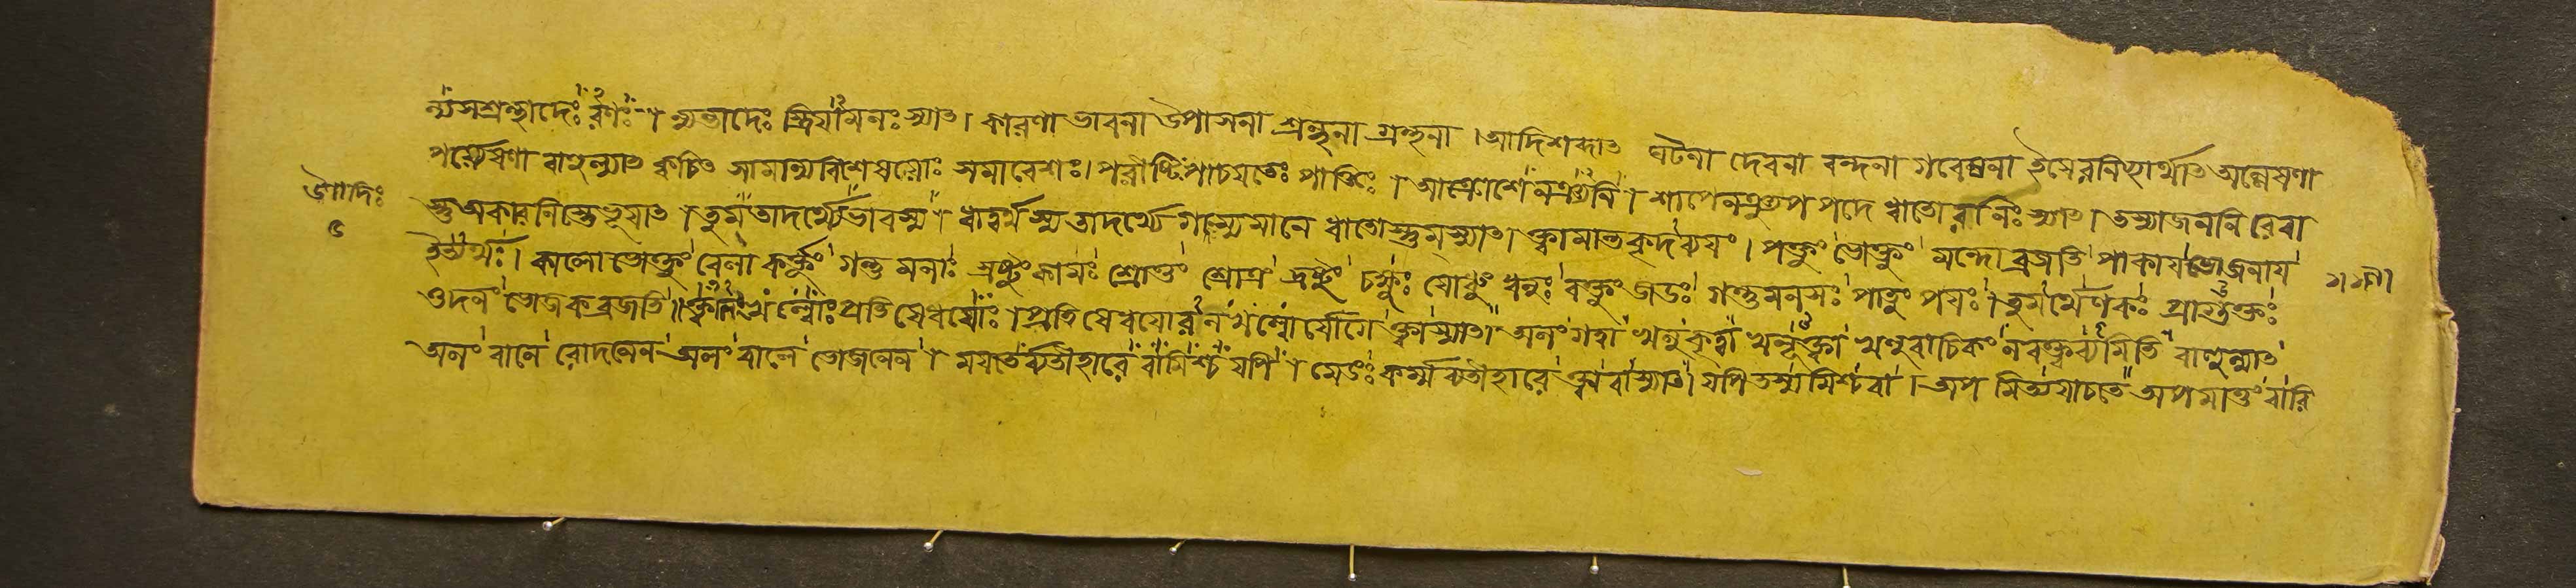 ন্যাসশ্রন্থাদেঃ । ন্যন্তাদেঃ স্ত্রিয়ামনঃ স্যাৎ। কারণা ভাবনা উপাসনা শ্রন্থনা গ্রন্থনা । আদিশব্দাৎ ঘটনা দেবনা বন্দনা গবেষনা ইষেরনিচ্ছার্থাৎ অন্বেষণা
পর্য্যেষণা বাহুল্যাৎ ক্বচিৎ সামান্যবিশেষয়োঃ সমাবেশঃ। পাচয়তেঃ পাক্তিঃ । শাপেন উপপদে ধাতোরনিঃ স্যাৎ। তস্যাজননিরেবা
উণাদিঃ স্তু অকারণিস্তে ভূয়াৎ । তুম্ তাদর্থ্যে ভাবস্য । ধাত্বর্থস্য তাদর্থ্যে গম্যমানে ধাতোস্তুম্ স্যাৎ। ক্ত্বামান্তকৃদব্যয়ং। পক্তুং ভোক্তুং মন্দো ব্রজতি পাকায় ভোজনায়
৫ ইত্যর্থঃ। কালো ভোক্তুং বেলা কর্ত্তুং গন্তুমনাঃ দ্রষ্টুংকামঃ শ্রোতুং শ্রোত্রং দ্রষ্টুং চক্ষুঃ যোদ্ধুং ধনুঃ বক্তুং জডঃ গন্তুমনসঃ পাতুং পয়ঃ। তুমর্থে ণকঃ প্রাগুক্তঃ
ওদনং ভোজক ব্রজতি॥ প্রতিষেধয়োঃ। প্রতিষেধয়োরলংখল্বোর্যোগে ক্ত্বা স্যাৎ। অলং গত্বা খলু কৃত্বা খলূক্ত্বা খলু বাচিকং ন বক্তব্যমিতি বাহুল্যাৎ
অলং বালে রোদনেন অলং বালে ভোজনেন । ময়তের্ব্যতীহারে যপি । মেঙঃ কর্ম্মব্যতীহারে ক্ত্বা বা স্যাৎ। যপি তস্য মিশ্চ বা । অপমিত্য যাচতে অপমাতুং বারি